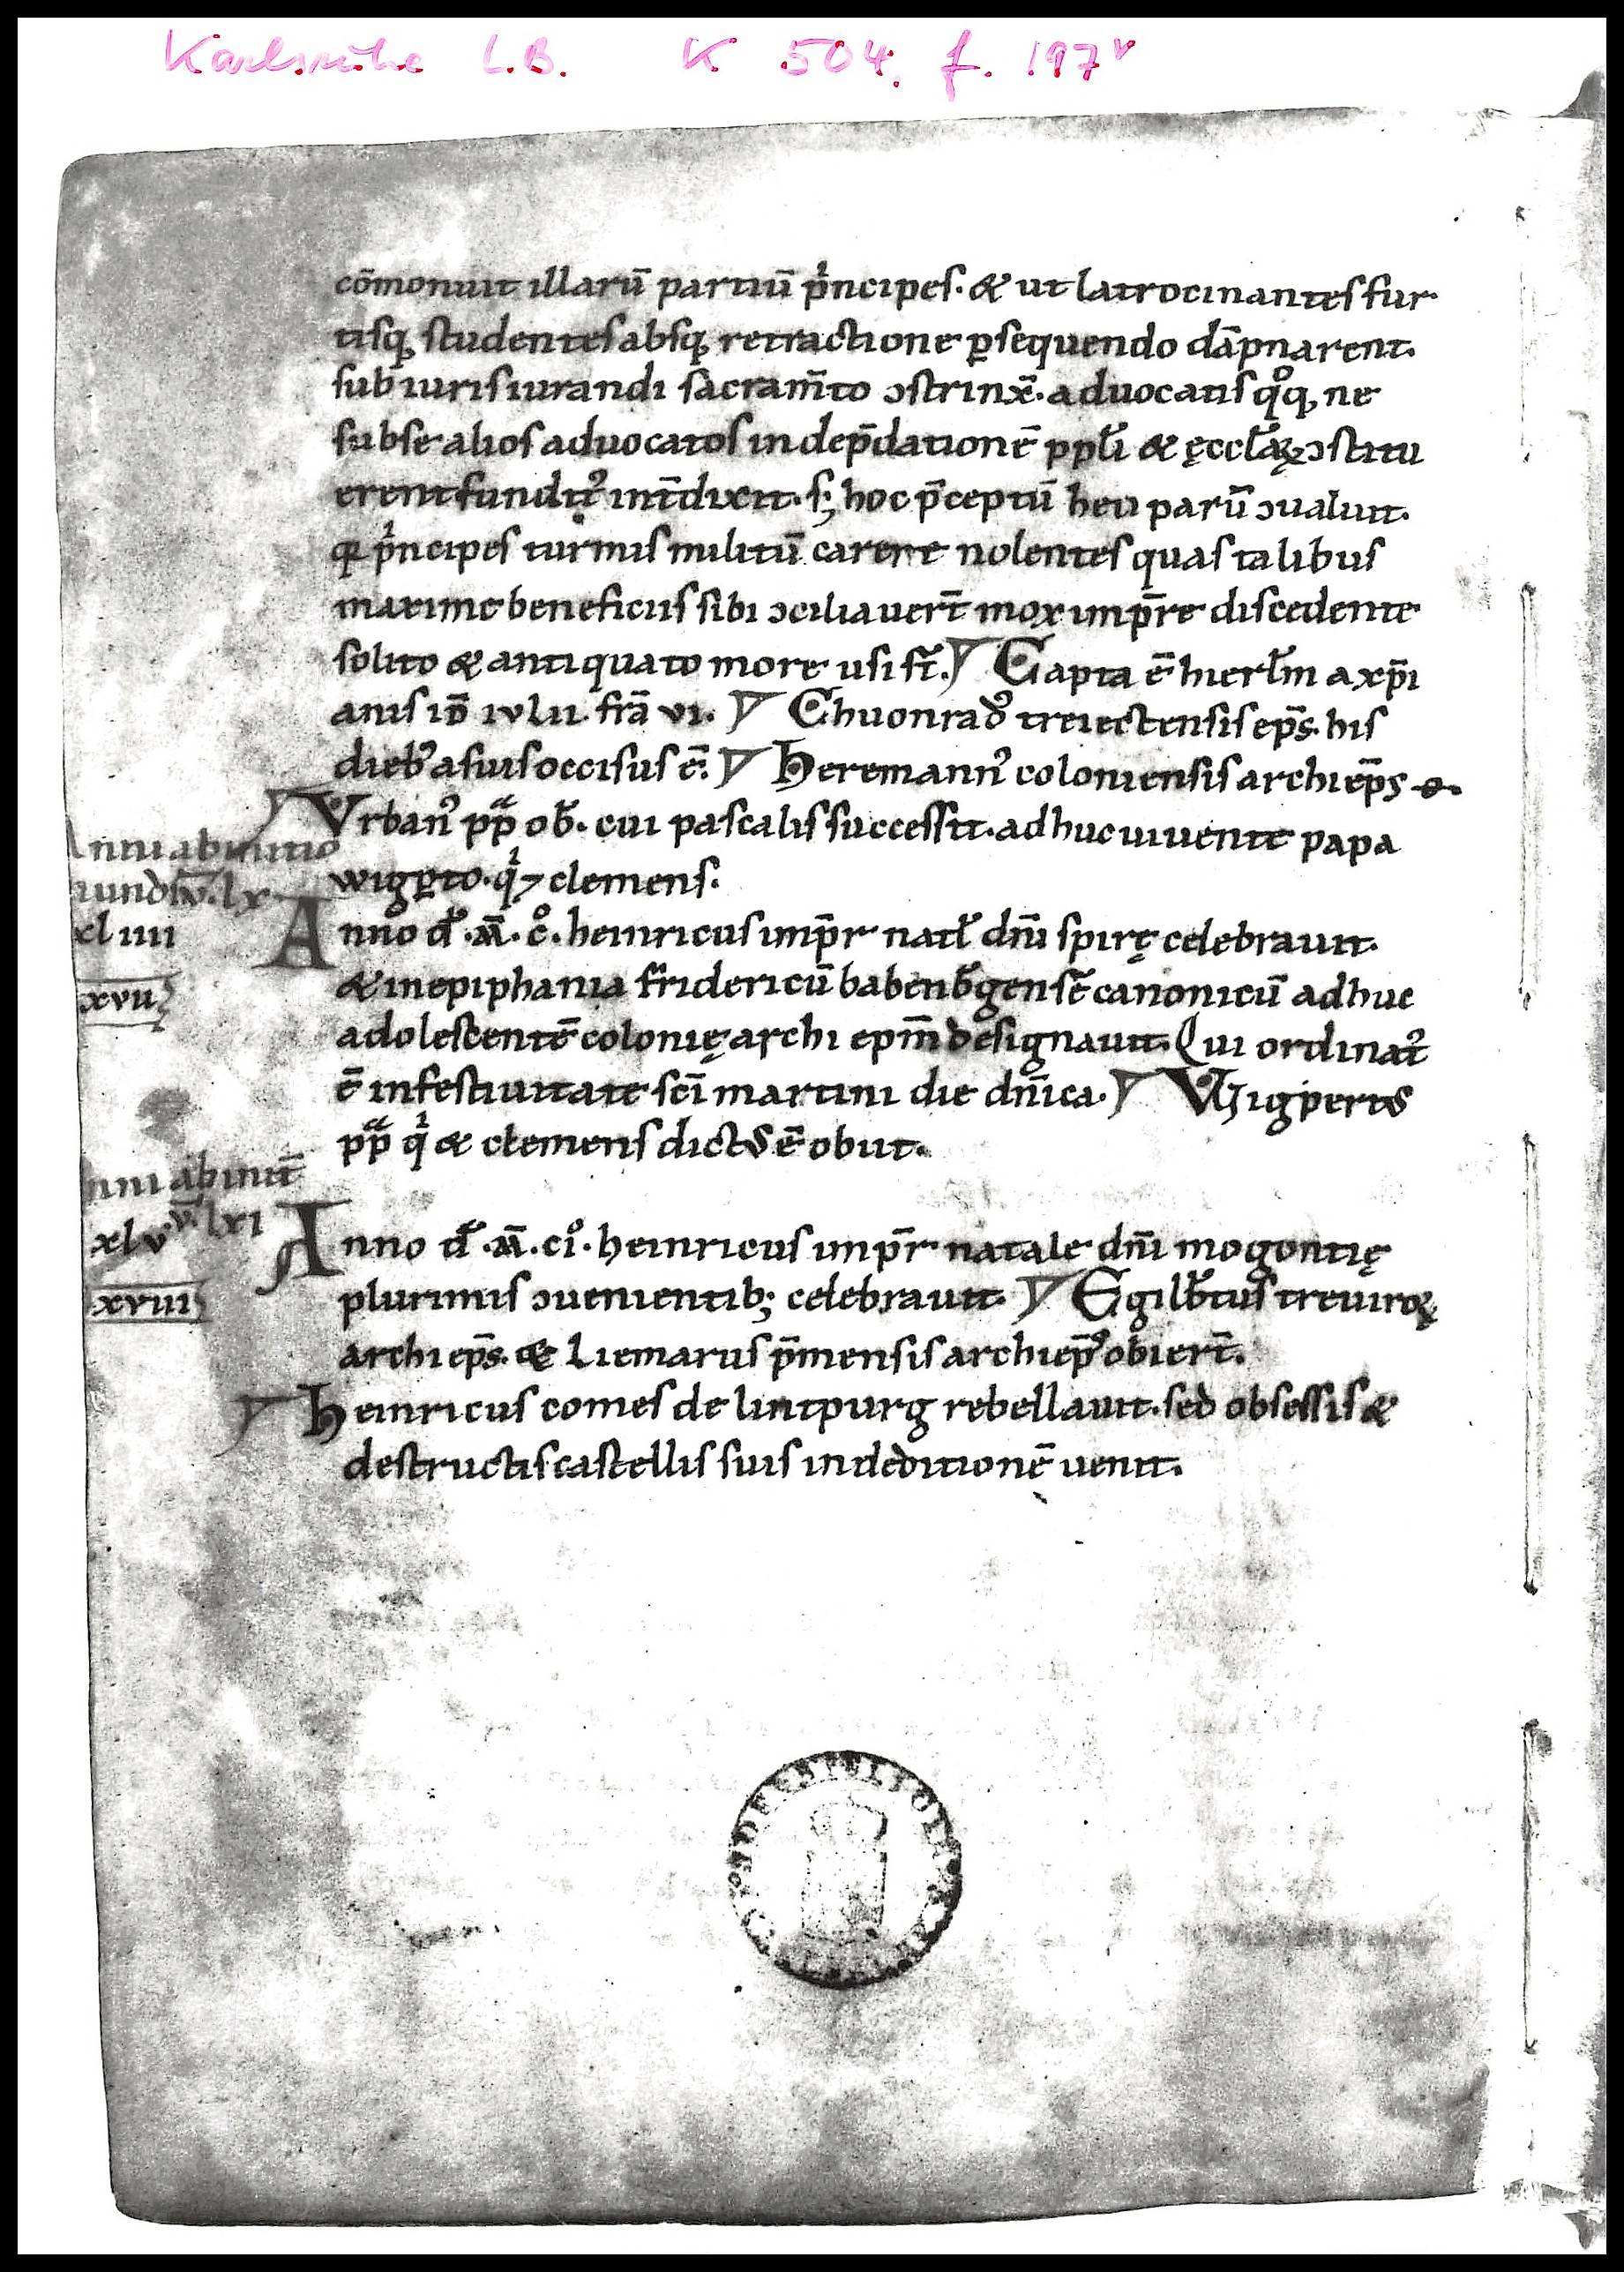 Karlsruhe L.B. K 504, f. 197v
cōmonuit illarū partiū pⁱncipes. & ut latrocinantes fur
tisq; studentes absq; retractione ꝑsequendo dāpnarent.
sub iurisiurandi sacram̄to ↄstrinx̄. aduocatis qͦq; ne
sub se alios aduocatos in dep̄dationē ppl̄i & ęccl̄aꝝ ↄstitu
erent fundit᷒ int̄dixit. s; hoc p̄ceptū heu parū ↄualuit.
qꝛ pⁱncipes turmis militū carere nolentes quas talibus
maxime beneficiis sibi ↄciliauer̄t mox imp̄re discedente
solito & antiquato more usi st̄. Capta ē hierl̄m a xp̄i
anis iD̄ iulii. fr̄a vi. Chuonrad᷒ treiectensis ep̄s. his
dieb᷒ a suis occisus ē. Heremann᷒ coloniensis archiep̄s ꝋ.
Vrban᷒ ppᵃ ob̄. cui pascalis successit. adhuc uiuente papa
Anni ab initio
wigꝑto. qⁱ ⁊ clemens.
mundi v̄. lx
xl iiii
Anno d̄. M̄. cͦ. heinricus imp̄r natl̄ dn̄i spirę celebrauit.
& in epiphania fridericū babenb̄gensē canonicū adhuc
xvii
adolescentē colonię archi epm̄ designauit. Qui ordinat᷒
ē in festiuitate sc̄i martini die dn̄ica. Wigpertus
ppᵃ qⁱ & clemens dictus ē obiit.
Anni ab init̄
v̄. lxi
xlv
Anno d̄. M̄. ciͦ. heinricus imp̄r natale dn̄i mogontię
xviii
plurimis ↄuenientib; celebrauit. Egilb̄tus treuiroꝝ
archiep̄s. & Liemarus p̄mensis archiep̄s obier̄t.
Heinricus comes de lintpurg rebellauit. sed obsessis &
destructis castellis suis in deditionē uenit.